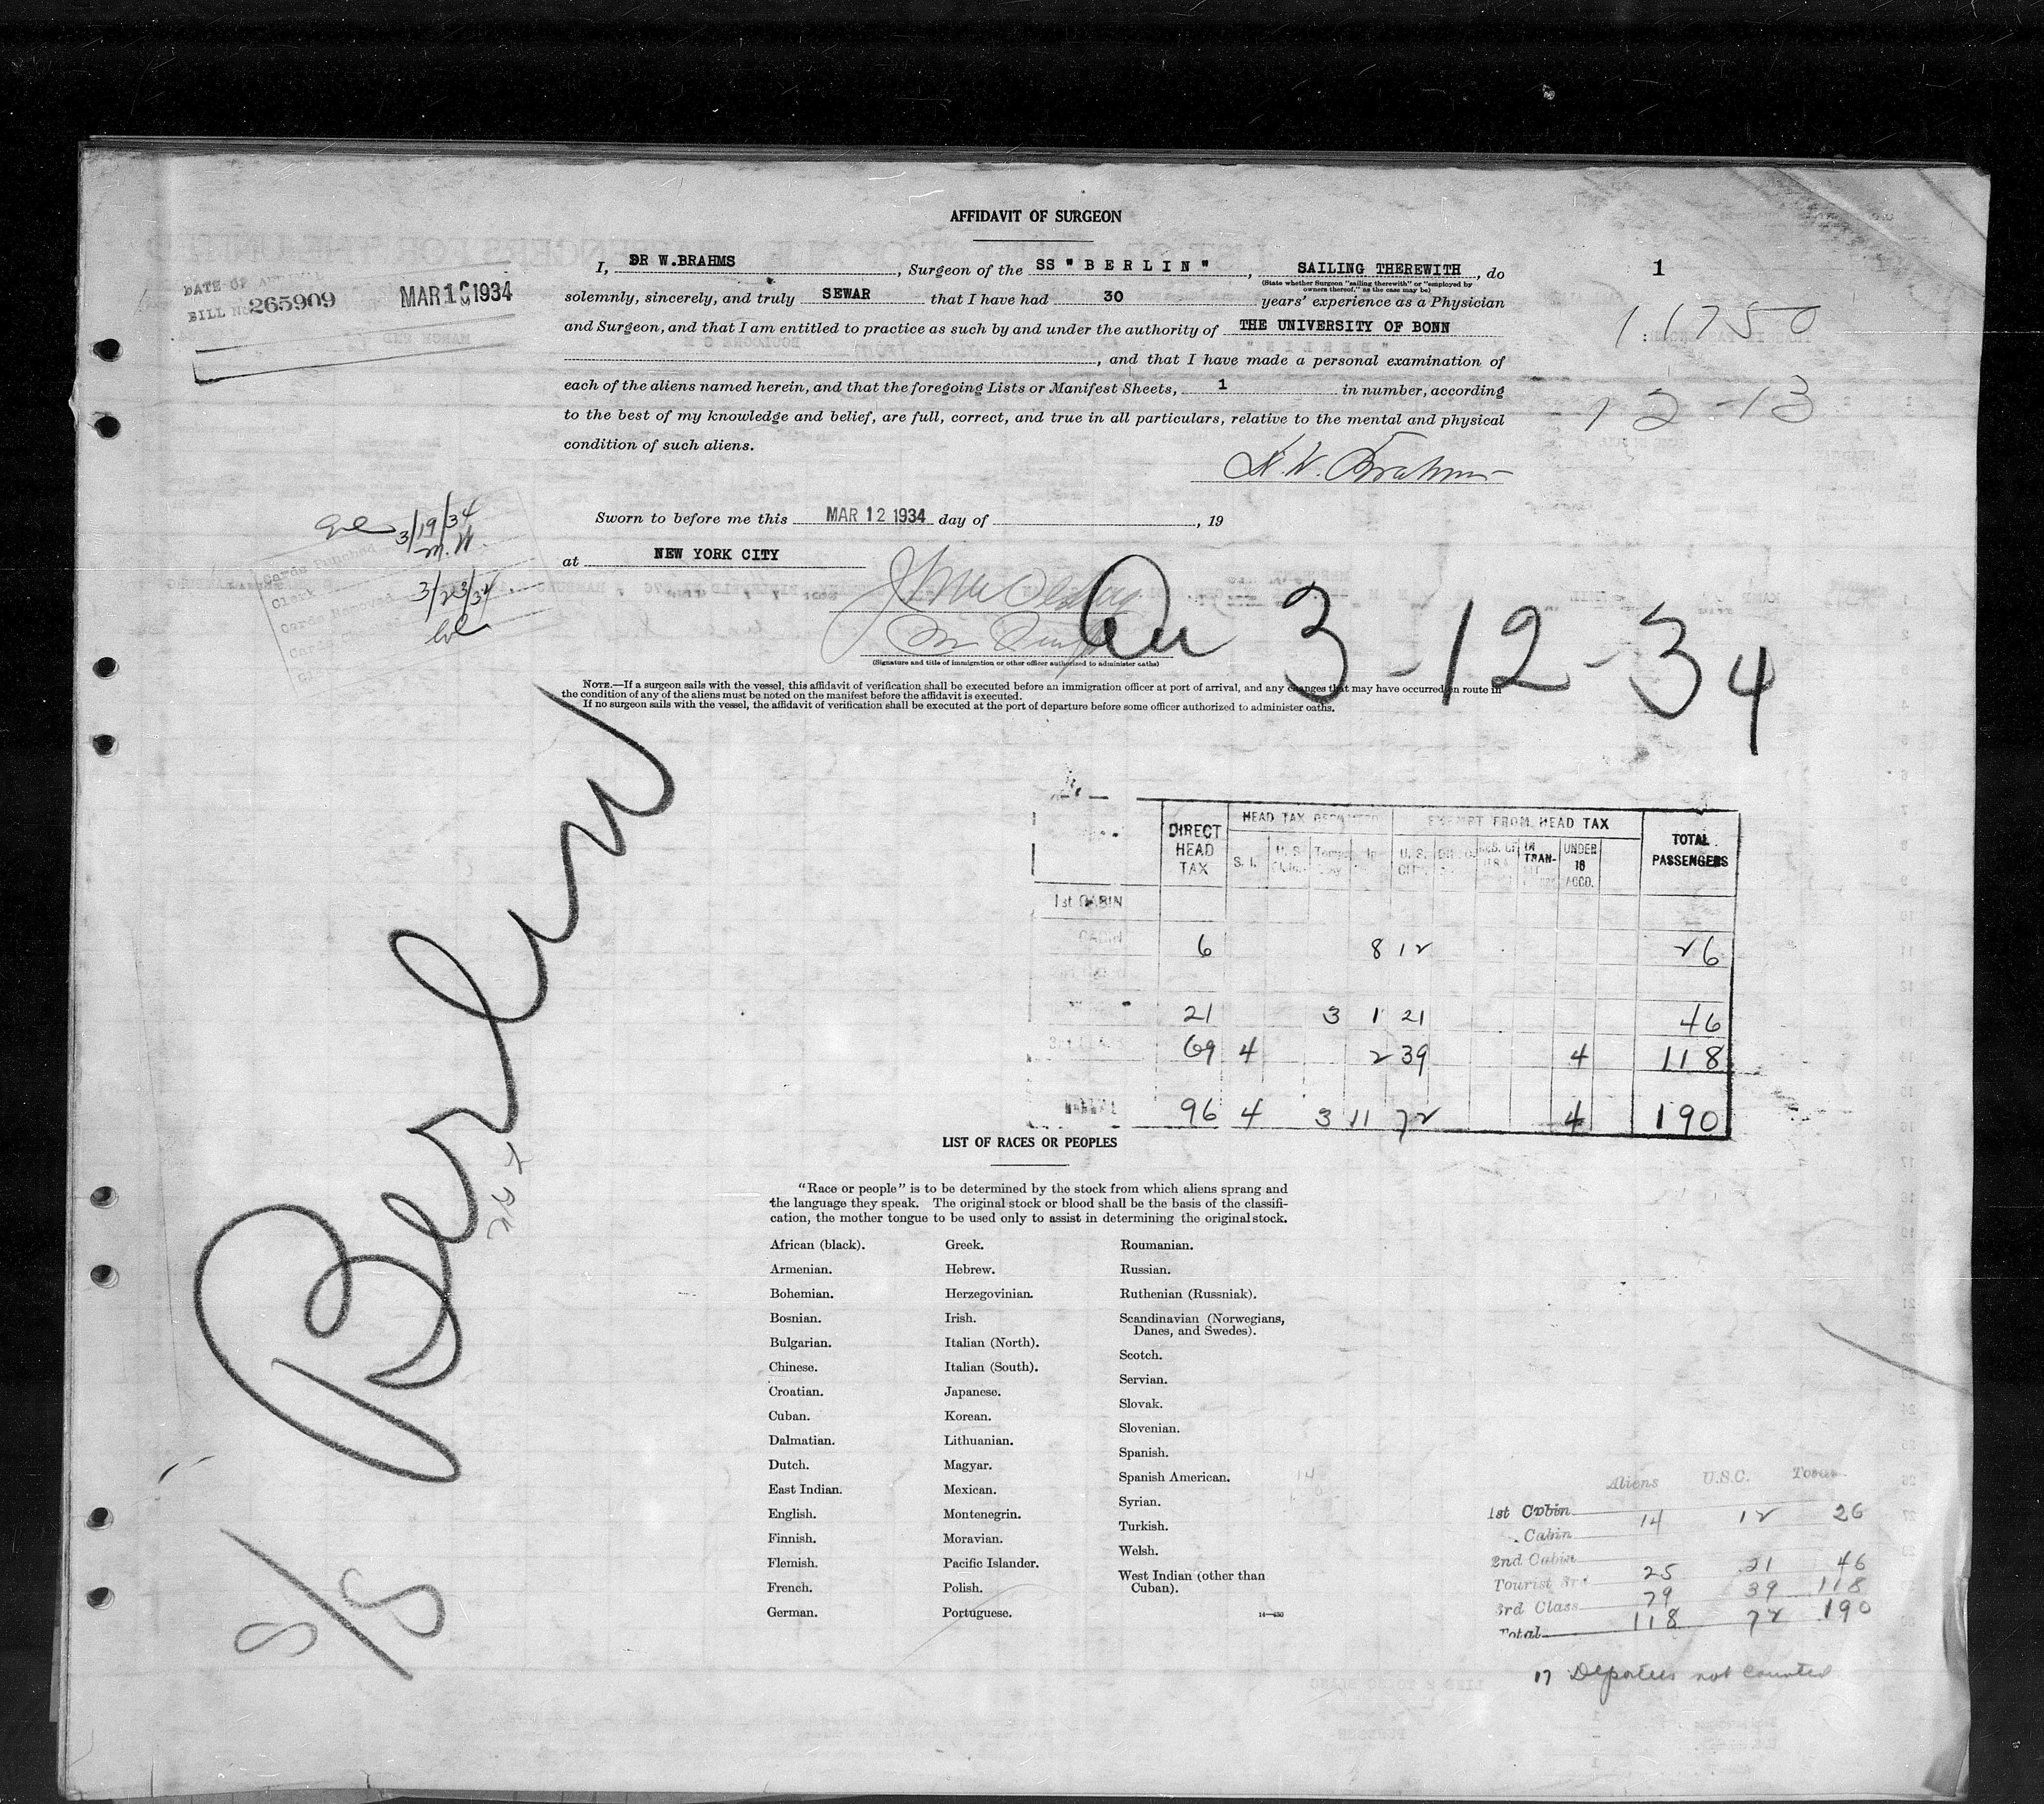 AFFIDAVIT OF SURGEON
I, DR W.BRAHMS, Surgeon of the SS "BERLIN", SAILING THEREWITH, do
(State whether Surgeon "sailing therewith" or "employed by owners thereof," as the case may be)
solemnly, sincerely, and truly SEWAR that I have had 30 years' experience as a Physician
and Surgeon, and that I am entitled to practice as such by and under the authority of THE UNIVERSITY OF BONN
, and that I have made a personal examination of
each of the aliens named herein, and that the foregoing Lists or Manifest Sheets, 1 in number, according
to the best of my knowledge and belief, are full, correct, and true in all particulars, relative to the mental and physical
condition of such aliens.
W. Brahms
1
11750
12-13
DATE OF
BILL No 265909
MAR 1 1934
Sworn to before me this MAR 12 1934 day of , 19
at NEW YORK CITY
3/19/34
M.W.
Cards Punched
Clerk
Cards Removed 3/23/34
3-12-34
(Signature and title of immigration or other officer authorized to administer oaths)
NOTE.—If a surgeon sails with the vessel, this affidavit of verification shall be executed before an immigration officer at port of arrival, and any changes that may have occurred en route in
the condition of any of the aliens must be noted on the manifest before the affidavit is executed.
If no surgeon sails with the vessel, the affidavit of verification shall be executed at the port of departure before some officer authorized to administer oaths.
Berlin
8/8
DIRECT HEAD TAX
HEAD TAX
EXEMPT FROM HEAD TAX
TOTAL PASSENGERS
S. I. U. S. U. S. IN TRAN- UNDER 16 ACCD.
1st CABIN
CABIN 6 8 12 26
21 3 1 21 46
3rd CLASS 69 4 2 39 4 118
96 4 3 11 72 4 190
LIST OF RACES OR PEOPLES
"Race or people" is to be determined by the stock from which aliens sprang and
the language they speak. The original stock or blood shall be the basis of the classifi-
cation, the mother tongue to be used only to assist in determining the original stock.
African (black).
Armenian.
Bohemian.
Bosnian.
Bulgarian.
Chinese.
Croatian.
Cuban.
Dalmatian.
Dutch.
East Indian.
English.
Finnish.
Flemish.
French.
German.
Greek.
Hebrew.
Herzegovinian.
Irish.
Italian (North).
Italian (South).
Japanese.
Korean.
Lithuanian.
Magyar.
Mexican.
Montenegrin.
Moravian.
Pacific Islander.
Polish.
Portuguese.
Roumanian.
Russian.
Ruthenian (Russniak).
Scandinavian (Norwegians,
Danes, and Swedes).
Scotch.
Servian.
Slovak.
Slovenian.
Spanish.
Spanish American.
Syrian.
Turkish.
Welsh.
West Indian (other than
Cuban).
14—430
Aliens U.S.C. Total
1st Cabin 14 12 26
Cabin
2nd Cabin
Tourist 3rd 25 21 46
3rd Class 79 39 118
Total 118 72 190
17 Deportees not counted